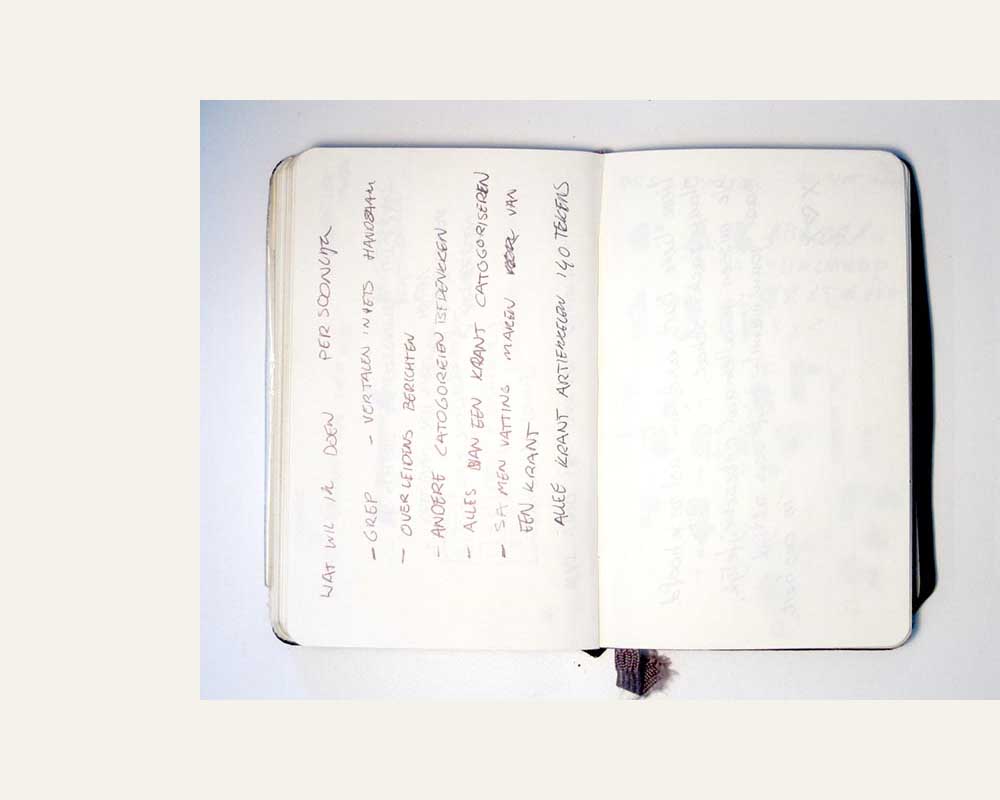 WAT WIL IK DOEN PERSOONLIJK
- GREP - VERTALEN IN IETS HANDBAAR
- OVERLEIDENS BERICHTEN
- ANDERE CATOGOREIEN BEDENKKEN
- ALLES VAN EEN KRANT CATOGORISEREN
- SAMEN VATTING MAKEN VAN
EEN KRANT
ALLEE KRANT ARTIEKKELEN 140 TEKENS